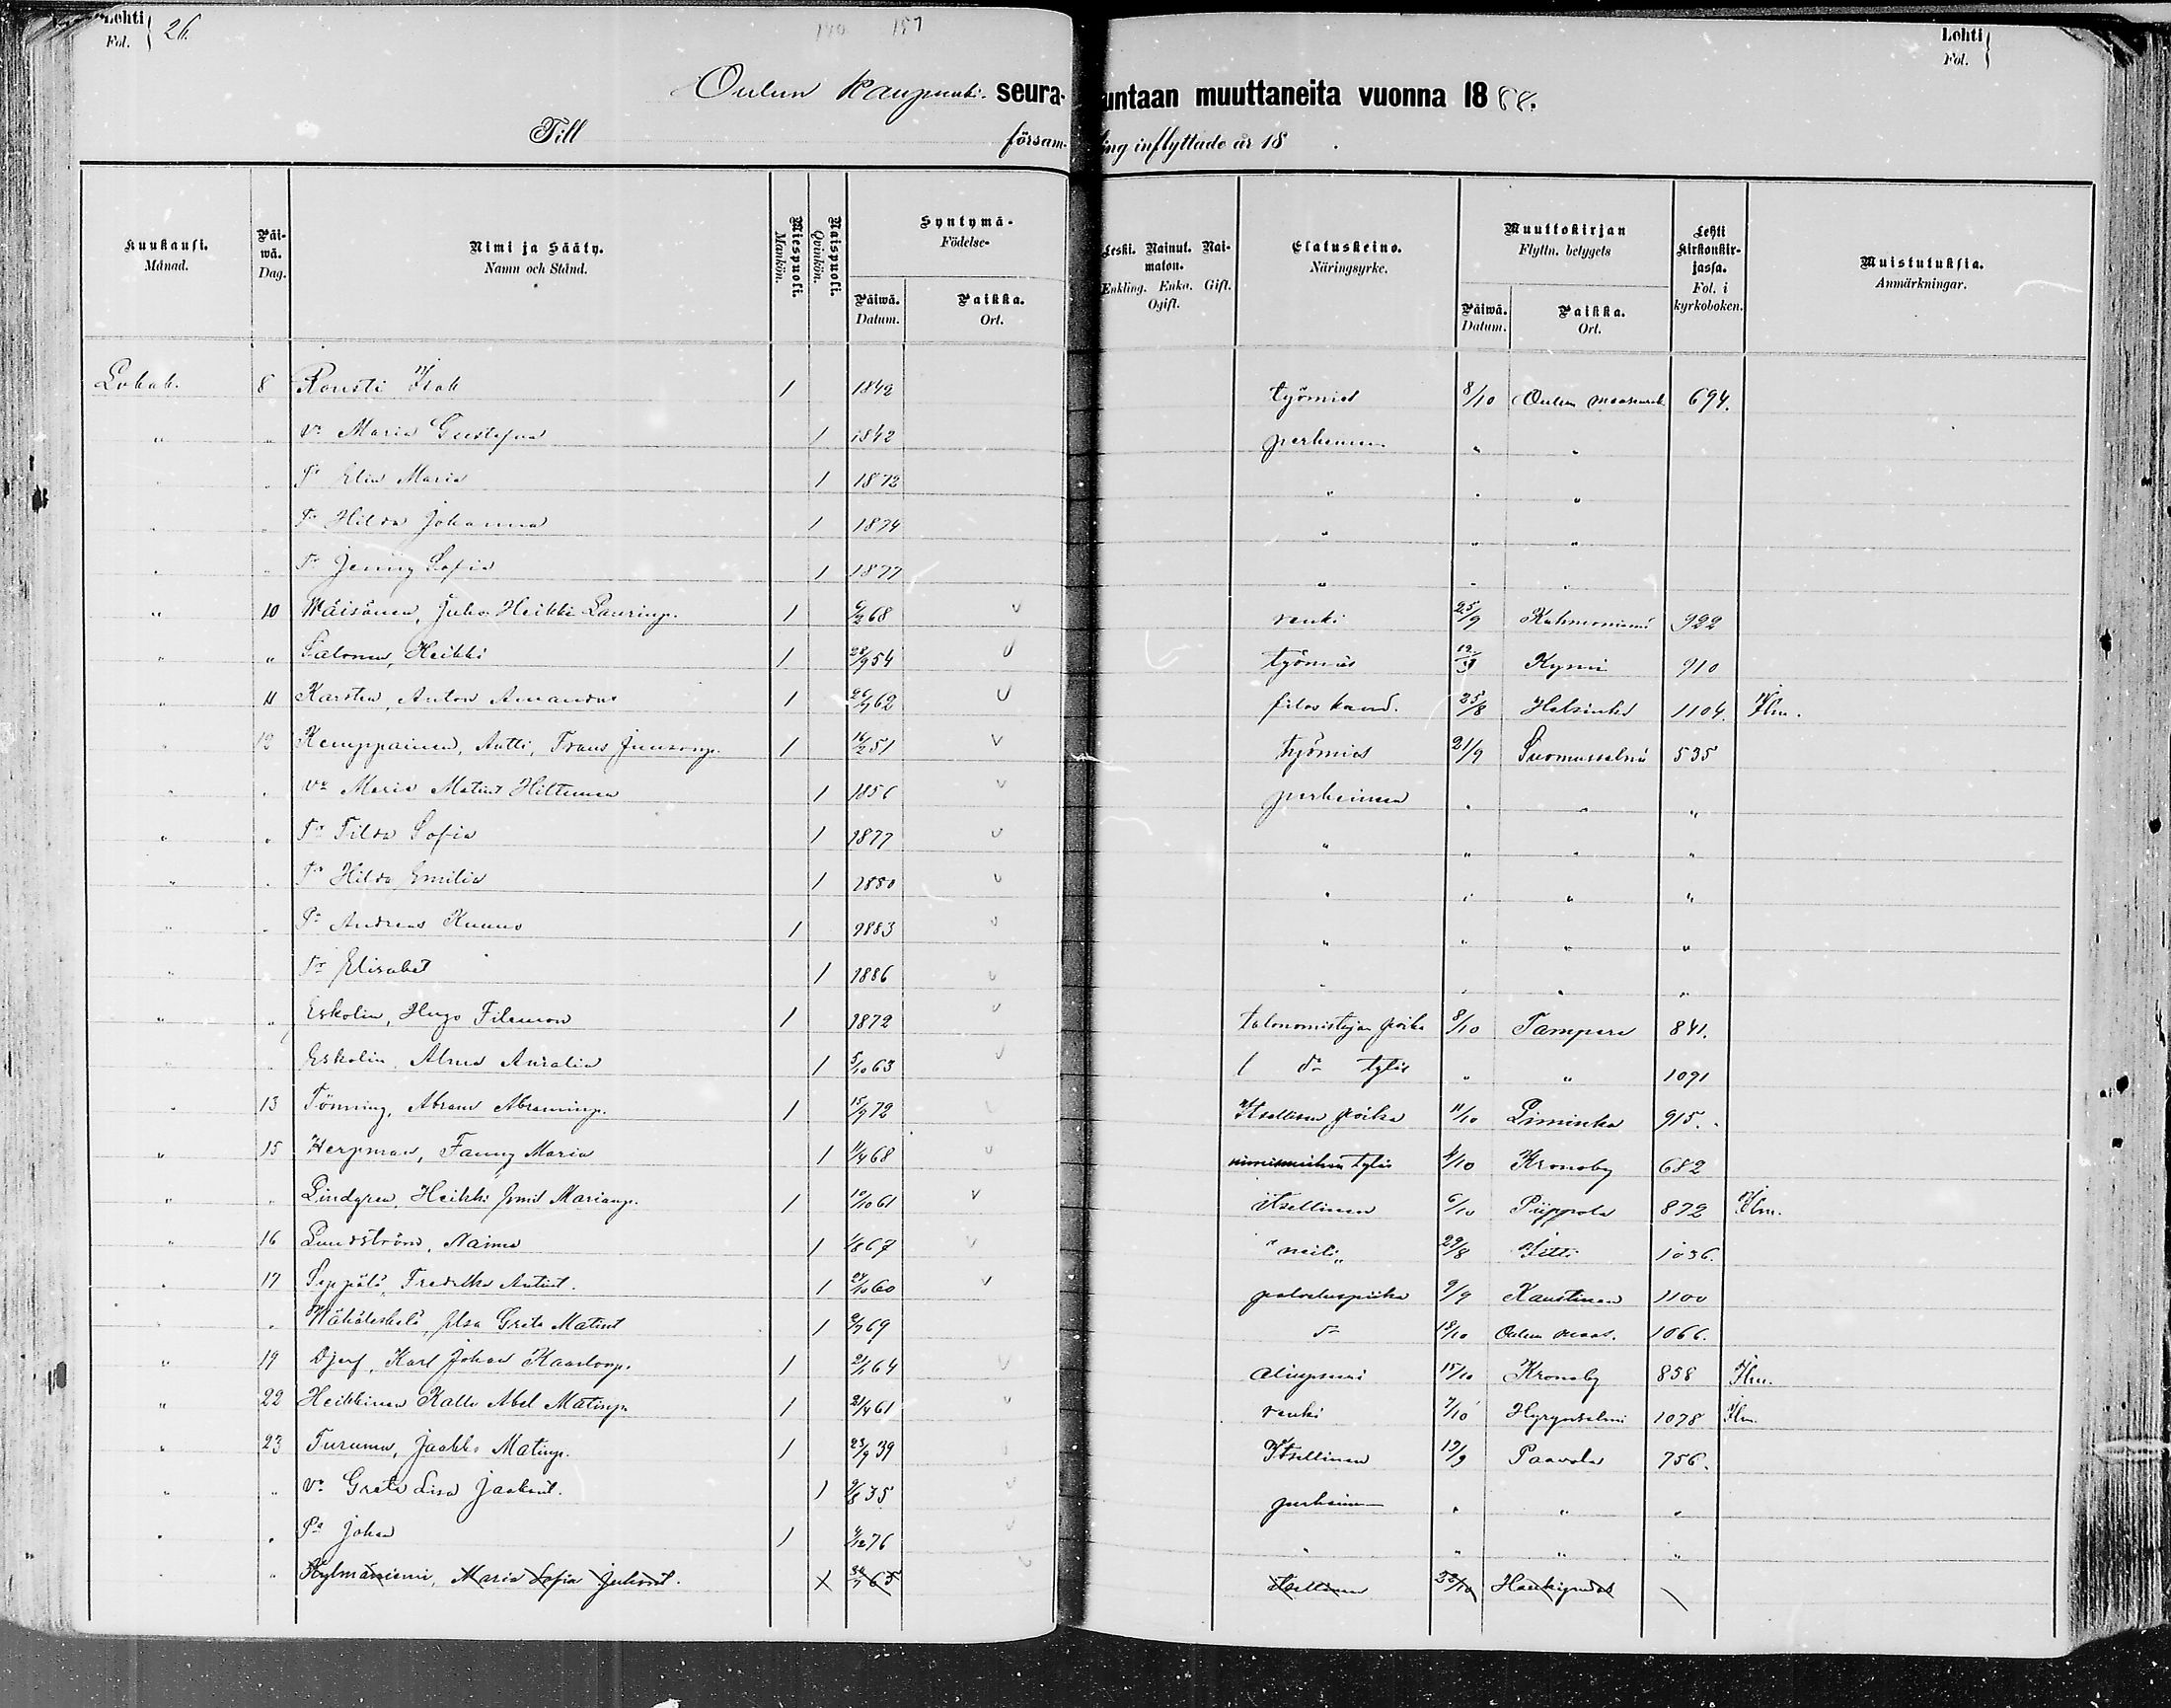 Lehti
Fol. 26.
157
Lehti
Fol.
Oulun kaupunki seurakuntaan muuttaneita vuonna 1888.
Till försam- ling inflyttade år 18 .
Kuukausi. Månad.
Päi-wä. Dag.
Nimi ja Sääty. Namn och Stånd.
Miespuoli. Mankön.
Naispuoli. Qvinkön.
Syntymä- Födelse-
Päiwä. Datum.
Paikka. Ort.
Leski. Nainut. Nai-maton. Enkling. Enka. Gift. Ogift.
Elatuskeino. Näringsyrke.
Muuttokirjan Flyttn. betygets
Päiwä. Datum.
Paikka. Ort.
Lehti kirkonkir-jassa. Fol. i kyrkoboken.
Muistutuksia. Anmärkningar.
Lokak. 8 Rousti Isak 1 1842 työmies 8/10 Oulun maaseurak. 694.
" " Vo Maria Gustafva 1 1842 perheineen " "
" " Tr Elin Maria 1 1872 " " "
" " Tr Hilda Johanna 1 1874 " " "
" " Tr Jenny Sofia 1 1877 " " "
" 10 Wäisänen, Juho Heikki Laurinp. 1 68 renki 25/9 Kuhmoniemi 922
" " Salonen, Heikki 1 28/9 54 työmies 12/9 Kymi 910
" 11 Karsten, Anton Amandus 1 62 filos kand. 25/8 Helsinki 1104. Ilm.
" 12 Kemppainen, Antti, Frans Juusonp. 1 16/2 51 työmies 21/9 Suomussalmi 535
" " Vo Maria Matint Hiltunen 1 1856 perheineen " " "
" " Tr Tilda Sofia 1 1877 " " " "
" " Tr Hilda Emilia 1 1880 " " " "
" " Pa Andreas Kuuno 1 1883 " " " "
" " Tr Elisabet 1 1886 " " " "
" " Eskolin, Hugo Filemon 1 1872 talonomistajan poika 8/10 Tampere 841.
" " Eskolin, Alma Auralia 1 5/10 63 do tytär " " 1091
" 13 Tönning, Abram Abraminp. 1 15/9 72 Itsellisen poika 11/10 Liminka 915.
" 15 Herpman, Fanny Maria 1 1/4 68 tytär 4/10 Kronoby 682
" " Lindgren, Heikki Emil Marianp. 1 10/10 61 itsellinen 6/10 Piippola 872 Ilm.
" 16 Lundström, Naima 1 1/8 67 "neiti" 29/8 Iitti 1036.
" 17 Seppälä, Fredrika Antint. 1 24/10 60 palveluspiika 9/9 Kaustinen 1100
" " Wähäleskelä, Elsa Greta Matint 1 69 do 18/10 Oulun maas. 1066.
" 19 Djerf, Karl Johan Kaarlonp. 1 64 aliupseeri 15/10 Kronoby 858 Ilm.
" 22 Heikkinen Kalle Abel Matinp. 1 21/4 61 renki 7/10 Hyrynsalmi 1078 Ilm.
" 23 Turunen, Jaakko Matinp. 1 23/9 39 Itsellinen 19/9 Paavola 756.
" " Vo Greta Lisa Jaakont. 1 9/8 35 perheineen " " "
" " Pa Johan 1 76 " " " "
" " Kylmäniemi, Maria Sofia Juhont. 1 65 itsellinen 22/10 Haukipudas